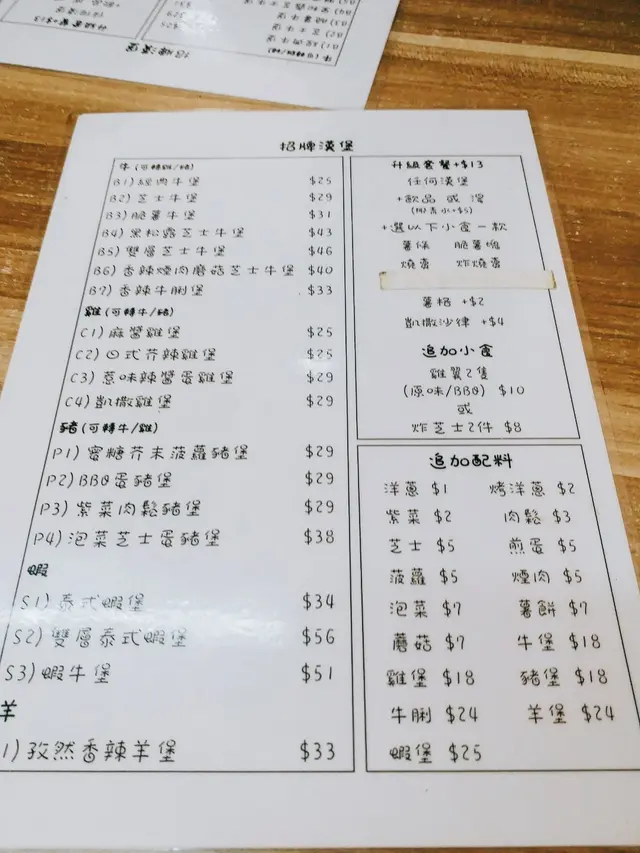 招牌漢堡
牛(可轉雞/豬)
B1)經典牛堡 $25
B2)芝士牛堡 $29
B3)脆薯牛堡 $31
B4)黑松露芝士牛堡 $43
B5)雙層芝士牛堡 $46
B6)香辣煙肉蘑菇芝士牛堡 $40
B7)香辣牛脷堡 $33
雞(可轉牛/豬)
C1)麻醬雞堡 $25
C2)日式芥辣雞堡 $25
C3)惹味辣醬蛋雞堡 $29
C4)凱撒雞堡 $29
豬(可轉牛/雞)
P1)蜜糖芥末菠蘿豬堡 $29
P2)BBQ蛋豬堡 $29
P3)紫菜肉鬆豬堡 $29
P4)泡菜芝士蛋豬堡 $38
蝦
S1)泰式蝦堡 $34
S2)雙層泰式蝦堡 $56
S3)蝦牛堡 $51
羊
1)孜然香辣羊堡 $33
升級套餐+$13
任何漢堡
+飲品 或 湯
+選以下小食一款
薯條 脆薯塊
燒賣 炸燒賣
薯格 +$2
凱撒沙律 +$4
追加小食
雞翼2隻
(原味/BBQ) $10
或
炸芝士2件 $8
追加配料
洋蔥 $1 烤洋蔥 $2
紫菜 $2 肉鬆 $3
芝士 $5 煎蛋 $5
菠蘿 $5 煙肉 $5
泡菜 $7 薯餅 $7
蘑菇 $7 牛堡 $18
雞堡 $18 豬堡 $18
牛脷 $24 羊堡 $24
蝦堡 $25